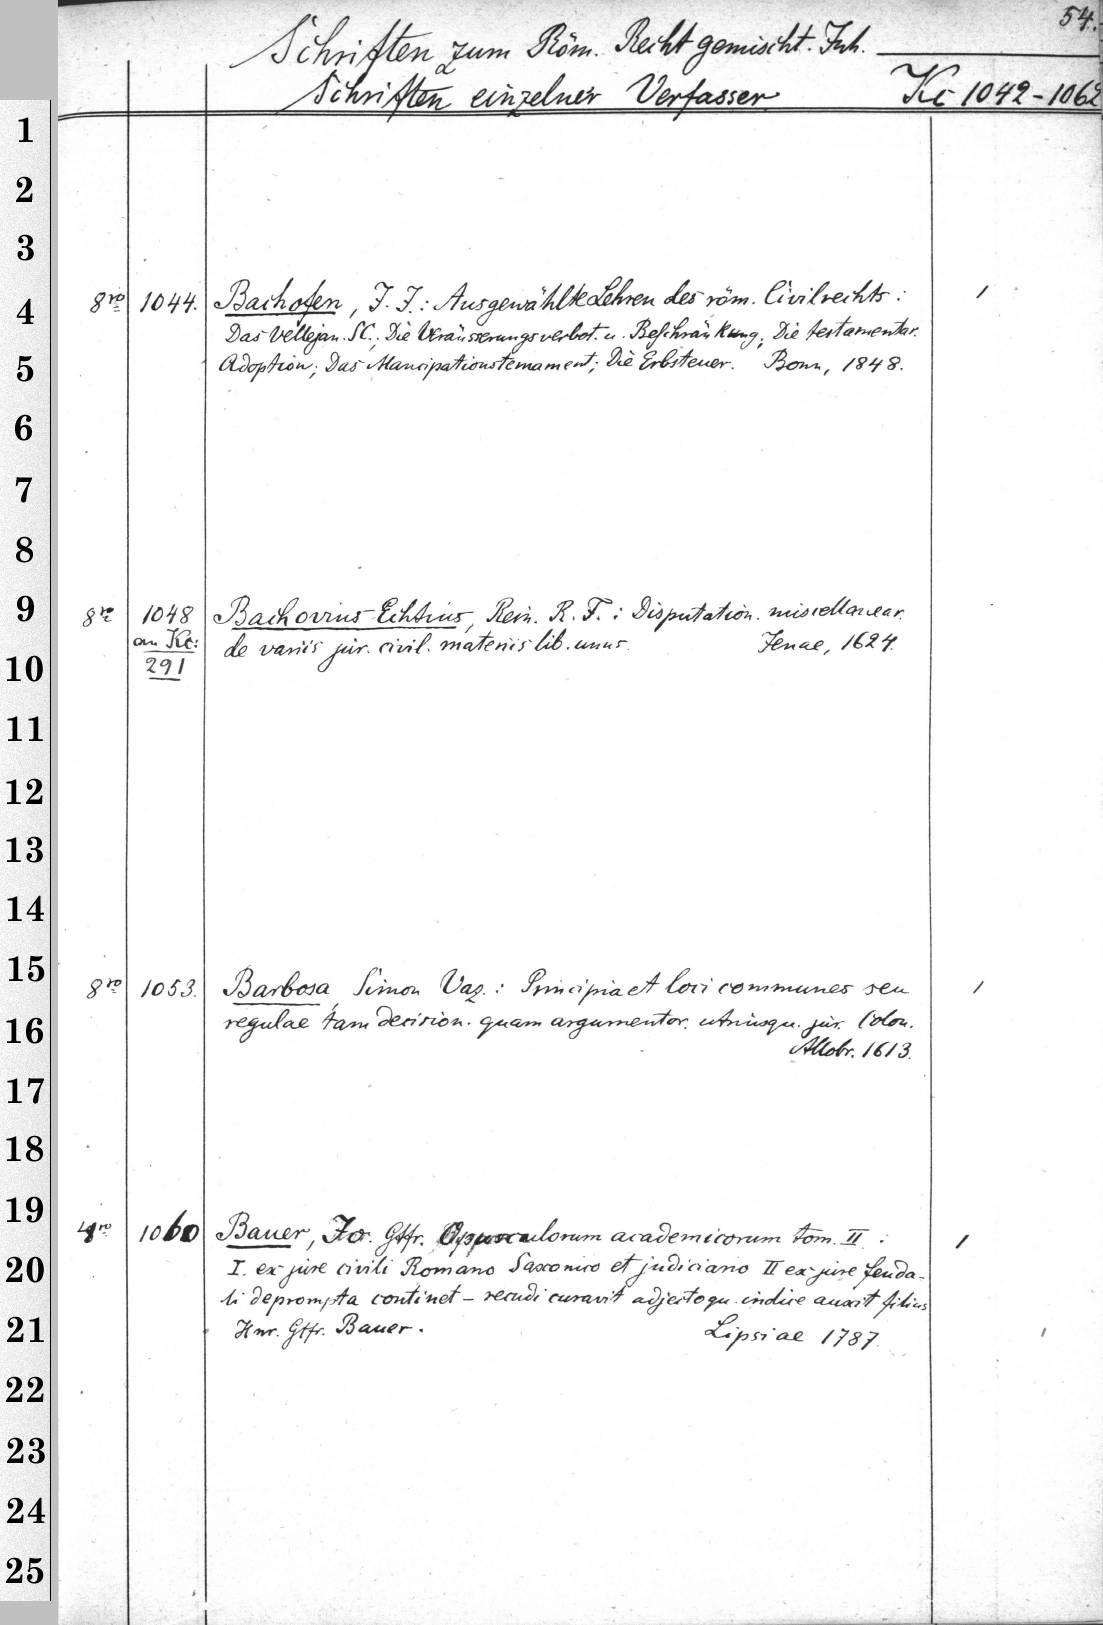 54.
Schriften zum Röm. Recht gemischt. Inh.
Schriften einzelner Verfasser Kc 1042-1062
1
2
3
8ro 1044. Bachofen, J. J.: Ausgewählte Lehren des röm. Civilrechts: 1
4
Das Vellejan. SC.; Die Veräusserungsverbot. u. Beschränkung; Die testamentar.
5
Adoption; Das Mancipationstemament; Die Erbsteuer. Bonn, 1848.
6
7
8
9
8ro 1048 Bachovius Echtius, Rein. R. F.: Disputation. miscellanear.
an Kc: de variis jur. civil. materiis lib. unus. Jenae, 1624.
10
291
11
12
13
14
15
8ro 1053. Barbosa, Simon Vaz.: Principia et loci communes seu 1
16
regulae tam decision. quam argumentor. utriusqu. jur. Colon.
Allobr. 1613.
17
18
19
4ro 1060 Bauer, Jo. Gttfr. Opusculorum academicorum tom. II: 1
20
I. ex jure civili Romano Saxonico et judiciario II ex jure feuda-
li deprompta continet - recudi curavit adjectoqu. indice auxit filius
21
Hnr. Gttfr. Bauer. Lipsiae 1787.
22
23
24
25